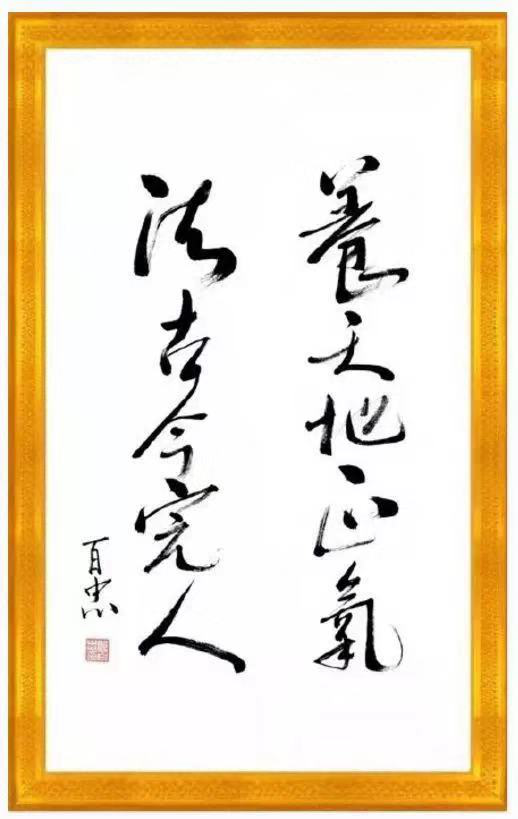 養天地正氣
法古今完人
百忠